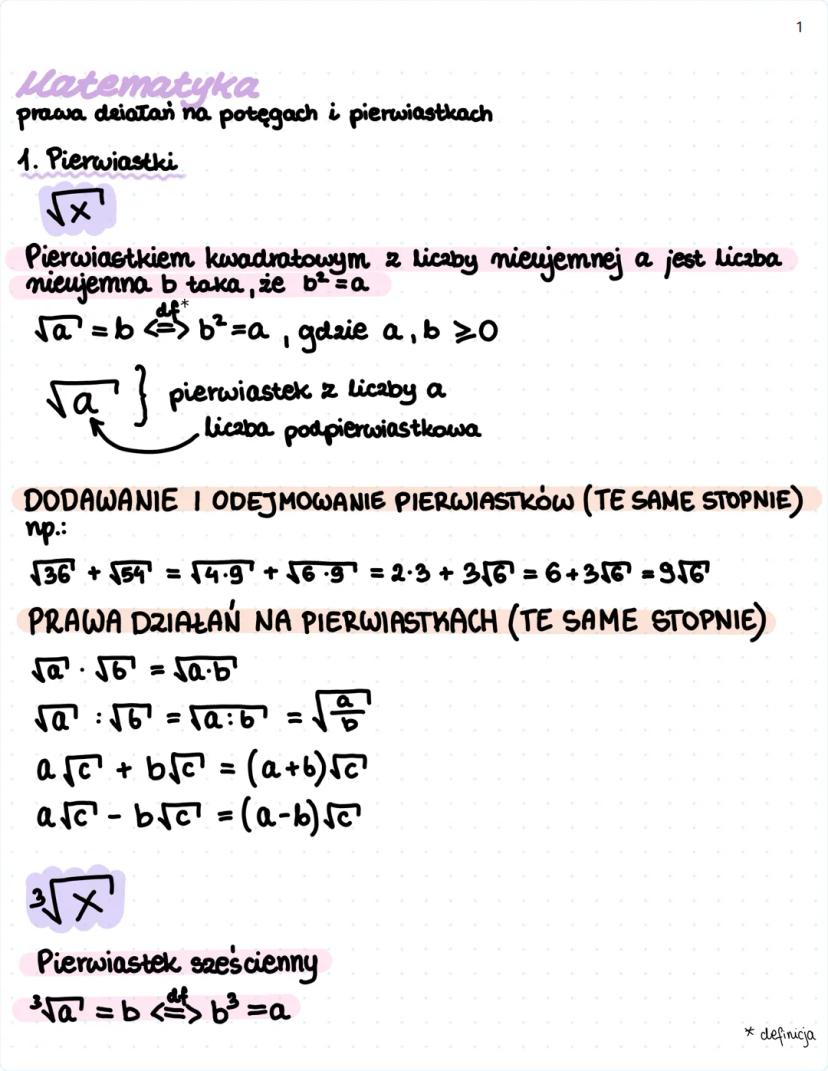 1
Matematyka
prawa działań na potęgach i pierwiastkach
1. Pierwiastki
√x
Pierwiastkiem kwadratowym z liczby nieujemnej a jest liczba
nieujemna b taka, że b²=a
√a = b <=> df* b²=a , gdzie a, b ⩾0
√a } pierwiastek z liczby a
liczba podpierwiastkowa
DODAWANIE I ODEJMOWANIE PIERWIASTKÓW (TE SAME STOPNIE)
np.:
√36 + √54 = √4·9 + √6·9 = 2·3 + 3√6 = 6+3√6 = 9√6
PRAWA DZIAŁAŃ NA PIERWIASTKACH (TE SAME STOPNIE)
√a · √b = √a·b
√a : √b = √a:b = √a/b
a√c + b√c = (a+b)√c
a√c - b√c = (a-b)√c
³√x
Pierwiastek sześcienny
³√a = b <=> df b³=a
* definicja